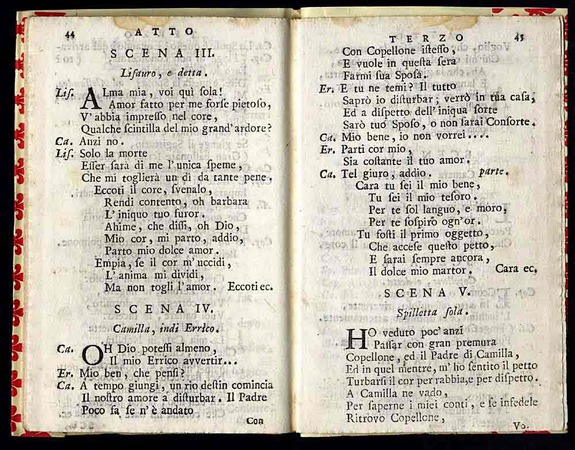 44
ATTO
SCENA III.
Lisauro, e detta.
Lis. Alma mia, voi quì sola!
Amor fatto per me forse pietoso,
V'abbia impresso nel core,
Qualche scintilla del mio grand'ardore?
Ca. Anzi no.
Lis. Solo la morte
Esser sarà di me l'unica speme,
Che mi toglierà un dì da tante pene.
Eccoti il core, svenalo,
Rendi contento, oh barbara
L'iniquo tuo furor.
Ahime, che dissi, oh Dio,
Mio cor, mi parto, addio,
Parto mio dolce amor.
Empia, se il cor m'uccidi,
L'anima mi dividi,
Ma non togli l'amor. Eccoti ec.
SCENA IV.
Camilla, indi Errico.
Ca. OH Dio potessi almeno,
Il mio Errico avvertir...
Er. Mio ben, che pensi?
Ca. A tempo giungi, un rio destin comincia
Il nostro amore a disturbar. Il Padre
Poco fa se n'è andato
Con
TERZO
45
Con Copellone istesso,
E vuole in questa sera
Farmi sua Sposa.
Er. E tu ne temi? Il tutto
Saprò io disturbar; verrò in tua casa,
Ed a dispetto dell'iniqua sorte
Sarò tuo Sposo, o non sarai Consorte.
Ca. Mio bene, io non vorrei....
Er. Parti cor mio,
Sia costante il tuo amor.
Ca. Tel giuro, addio. parte.
Cara tu sei il mio bene,
Tu sei il mio tesoro.
Per te sol languo, e moro,
Per te sospiro ogn'or.
Tu fosti il primo oggetto,
Che accese questo petto,
E sarai sempre ancora,
Il dolce mio martor. Cara ec.
SCENA V.
Spilletta sola.
HO veduto poc'anzi
Passar con gran premura
Copellone, ed il Padre di Camilla,
Ed in quel mentre, m'ho sentito il petto
Turbarsi il cor per rabbia, e per dispetto.
A Camilla ne vado,
Per saperne i miei conti, e se infedele
Ritrovo Copellone,
Vo.